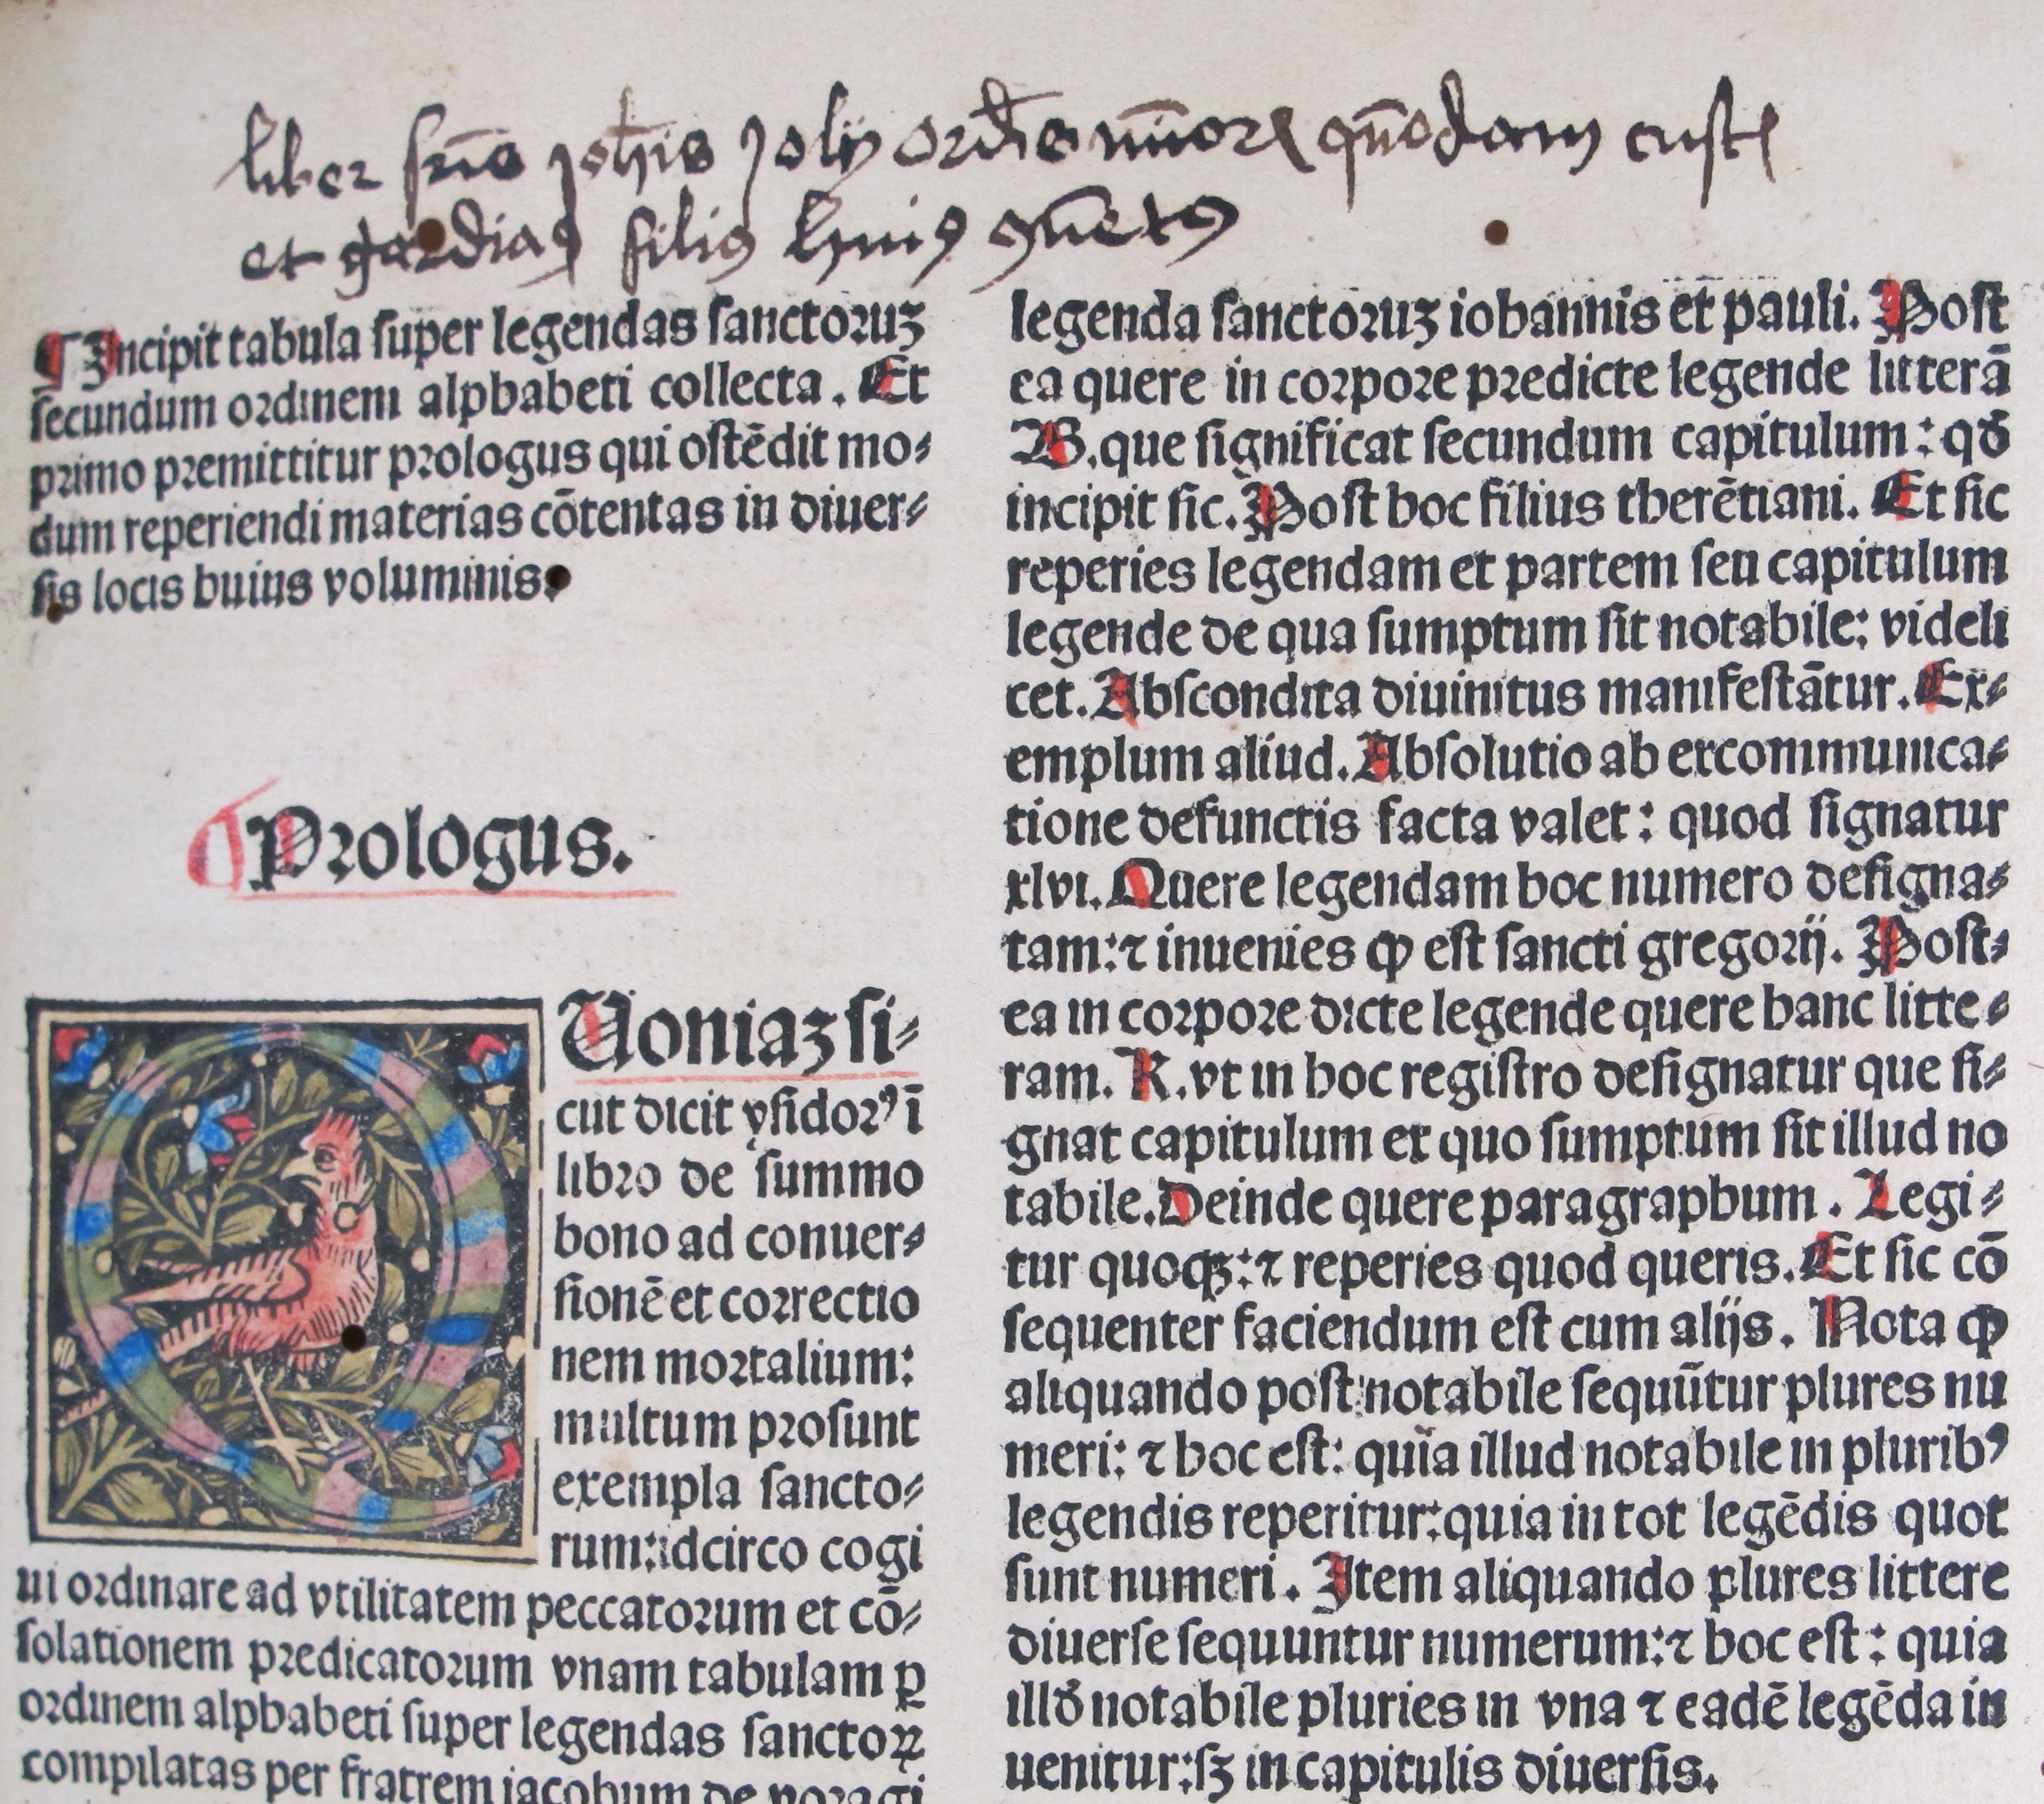 liber fr̄is joh̄is jolij ordīs mīorꝝ quōdam custꝭ
et gardiaꝯ filiꝯ huiꝯ ꝯuētꝯ
¶ Incipit tabula ſuper legendas ſanctoruꝫ
ſecundum ordinem alphabeti collecta. Et
primo premittitur prologus qui oſtēdit mo⸗
dum reperiendi materias cōtentas in diuer⸗
ſis locis huius voluminis.
Prologus.
Uoniaꝫ ſi⸗
cut dicit yſidorꝰ ī
libro de ſummo
bono ad conuer⸗
ſionē et correctio
nem mortalium:
multum proſunt
exempla ſancto⸗
rum: idcirco cogi
ui ordinare ad vtilitatem peccatorum et cō⸗
ſolationem predicatorum vnam tabulam ꝑ
ordinem alphabeti ſuper legendas ſanctoꝝ
compilatas per fratrem iacobum de voragi
legenda ſanctoruꝫ iohannis et pauli. Poſt
ea quere in corpore predicte legende litterā
B. que ſignificat ſecundum capitulum: qḋ
incipit ſic. Poſt hoc filius therētiani. Et ſic
reperies legendam et partem ſeu capitulum
legende de qua ſumptum ſit notabile: videli
cet. Abſcondita diuinitus manifeſtātur. Ex⸗
emplum aliud. Abſolutio ab excommunica⸗
tione defunctis facta valet: quod ſignatur
xlvi. Quere legendam hoc numero deſigna⸗
tam: ⁊ inuenies ꝙ eſt ſancti gregorij. Poſt⸗
ea in corpore dicte legende quere hanc litte⸗
ram. R. vt in hoc regiſtro deſignatur que ſi⸗
gnat capitulum ex quo ſumptum ſit illud no
tabile. Deinde quere paragraphum. Legi⸗
tur quoqꝫ: ⁊ reperies quod queris. Et ſic cō
ſequenter faciendum eſt cum alijs. Nota ꝙ
aliquando poſt notabile ſequūtur plures nu
meri: ⁊ hoc eſt: quia illud notabile in pluribꝰ
legendis reperitur: quia in tot legēdis quot
ſunt numeri. Item aliquando plures littere
diuerſe ſequuntur numerum: ⁊ hoc eſt: quia
illḋ notabile pluries in vna ⁊ eadē legēda in
uenitur: ſꝫ in capitulis diuerſis.